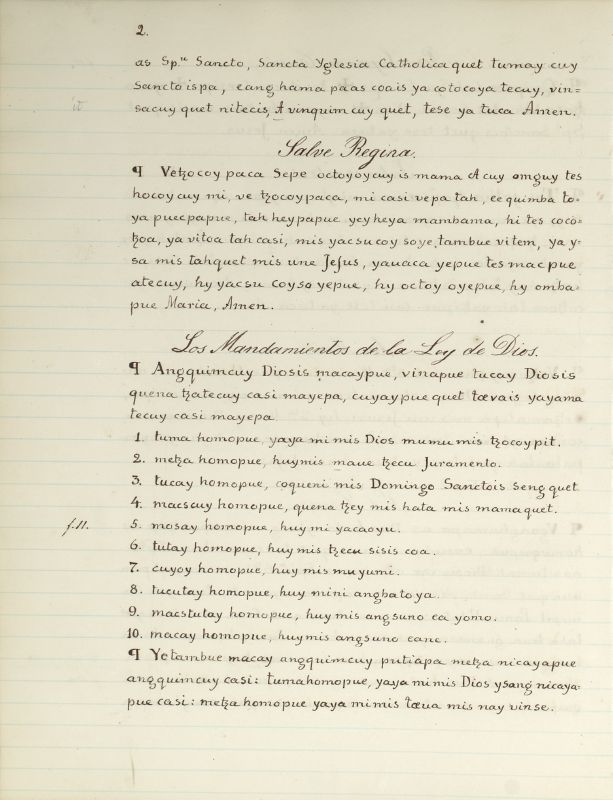 2.
as Sp.ᵘ Sancto, Sancta Yglesia Catholica quet tumay cuy
Sancto ispa, cang hama paas coais ya cotocoya tecuy, vin=
sacuy quet nitecis, A vinquim cuy quet, tese ya tuca Amen.
Salve Regina.
¶ Vetzocoy paca Sepe octoyoycuy is mama A cuy omguy tes
hocoy cuy mi, ve tzocoypaca, mi casi vepa tah, ce quimba to=
ya puecpapue, tah heypapue yeyheya mambama, hi tes coco=
tzoa, ya vitoa tah casi, mis yacsucoy soye tambue vitem, ya y=
sa mis tahquet mis une Jesus, yauaca yepue tes mac pue
atecuy, hy yacsu coyso yepue, hy octoy oyepue, hy omba=
pue Maria, Amen.
Los Mandamientos de la Ley de Dios.
¶ Angquimcuy Diosis macaypue, vinapue tucay Diosis
quena tzatecuy casi mayepa, cuyaypue quet tævais yayama
tecuy casi mayepa
1. tuma homopue, yaya mi mis Dios mumu mis tzocoypit.
2. metza homopue, huymis maue tzecu Juramento.
3. tucay homopue, coqueni mis Domingo Sanctois seng quet
4. macscuy homopue, quena tzey mis hata mis mamaquet.
f.11.
5. mosay homopue, huy mi yacaoyu.
6. tutay homopue, huy mis tzecu sisis coa.
7. cuyoy homopue, huy mis muyumi.
8. tucutay homopue, huy mini angbatoya.
9. macstutay homopue, huy mis angsuno ea yomo.
10. macay homopue, huymis angsuno eane.
¶ Yetambue macay angquimcuy putiapa metza nicayapue
angquimcuy casi: tumahomopue, yaya mi mis Dios ysang nicaya=
pue casi: metza homopue yaya mi mis tæua mis nay vinse.